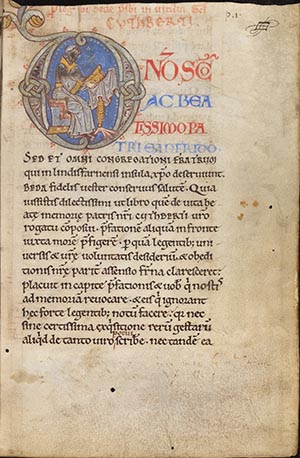 bede p̄sbi in
CUTHBERTI
D
NO SCO
AC BEA
TISSIMO PA
TRI EANFRIDO
SED ET OMNI CONGREGATIONI FRATRUM
qui in lindisfarnensi insula, xp̄o deseruiunt.
BEDA fidelis uester conseruus salutē. Quia
iussistis dilectissimi ut libro quē de uita be
atę memorię patris nr̄i CUTHBERTI uro
rogatu cōposui. p̄fationē aliquā in fronte
iuxta morē p̄figerē. p quā legentib; uni
uersis & urę uoluntatis desideriū. & obędi
tionis nr̄ę parit̄ assensio fr̄na claresceret;
placuit in capite p̄fationis & uob̄ q̓ nostis
ad memoriā reuocare. & eis q̓ ignorant
hęc forte legentib; notū facere. qđ nec
sine certissima exq̓sitione rerū gestarū
aliq̓d de tanto uiro scribere. nec tandē ea